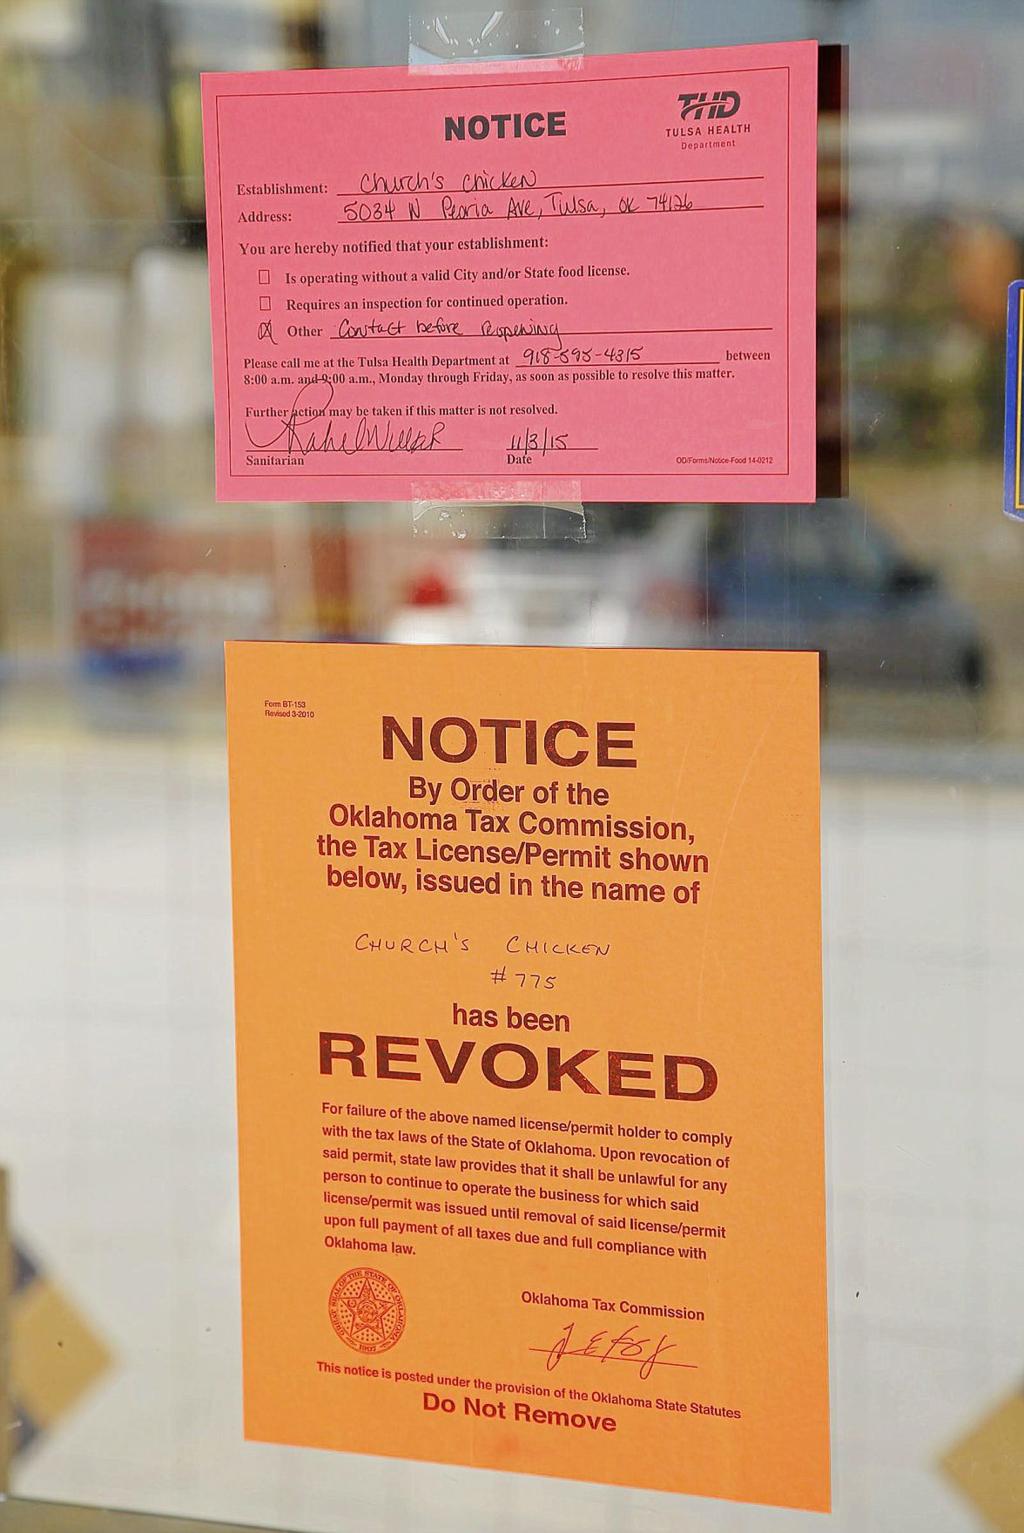 THD
TULSA HEALTH
Department
NOTICE
Establishment: Church's Chicken
Address: 5034 N Peoria Ave, Tulsa, OK 74126
You are hereby notified that your establishment:
Is operating without a valid City and/or State food license.
Requires an inspection for continued operation.
Other Contact before Reopening
Please call me at the Tulsa Health Department at 918-595-4315 between
8:00 a.m. and 9:00 a.m., Monday through Friday, as soon as possible to resolve this matter.
Further action may be taken if this matter is not resolved.
11/3/15
Sanitarian Date OD/Forms/Notice-Food 14-0212
Form BT-153
Revised 3-2010
NOTICE
By Order of the
Oklahoma Tax Commission,
the Tax License/Permit shown
below, issued in the name of
CHURCH'S CHICKEN
#775
has been
REVOKED
For failure of the above named license/permit holder to comply
with the tax laws of the State of Oklahoma. Upon revocation of
said permit, state law provides that it shall be unlawful for any
person to continue to operate the business for which said
license/permit was issued until removal of said license/permit
upon full payment of all taxes due and full compliance with
Oklahoma law.
GREAT SEAL OF THE STATE OF OKLAHOMA
1907
Oklahoma Tax Commission
This notice is posted under the provision of the Oklahoma State Statutes
Do Not Remove